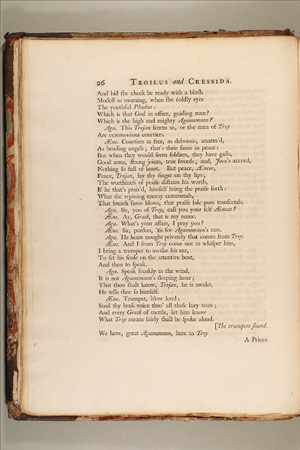 26 TROILUS and CRESSIDA.
And bid the cheek be ready with a blush
Modest as morning, when she coldly eyes
The youthful Phœbus:
Which is that God in office, guiding men?
Which is the high and mighty Agamemnon?
Aga. This Trojan scorns us, or the men of Troy
Are ceremonious courtiers.
Æne. Courtiers as free, as debonair, unarm'd,
As bending angels; that's their fame in peace:
But when they would seem soldiers, they have galls,
Good arms, strong joints, true swords; and, Jove's accord,
Nothing so full of heart. But peace, Æneas,
Peace, Trojan, lay thy finger on thy lips;
The worthiness of praise distains his worth,
If he that's prais'd, himself bring the praise forth:
What the repining enemy commends,
That breath fame blows, that praise sole pure transcends.
Aga. Sir, you of Troy, call you your self Æneas?
Æne. Ay, Greek, that is my name.
Aga. What's your affair, I pray you?
Æne. Sir, pardon, 'tis for Agamemnon's ears.
Aga. He hears nought privately that comes from Troy.
Æne. And I from Troy come not to whisper him,
I bring a trumpet to awake his ear,
To set his sense on the attentive bent,
And then to speak.
Aga. Speak frankly as the wind,
It is not Agamemnon's sleeping hour;
That thou shalt know, Trojan, he is awake,
He tells thee so himself.
Æne. Trumpet, blow loud:
Send thy brass voice thro' all these lazy tents;
And every Greek of mettle, let him know
What Troy means fairly shall be spoke aloud.
[The trumpets sound.
We have, great Agamemnon, here in Troy
A Prince